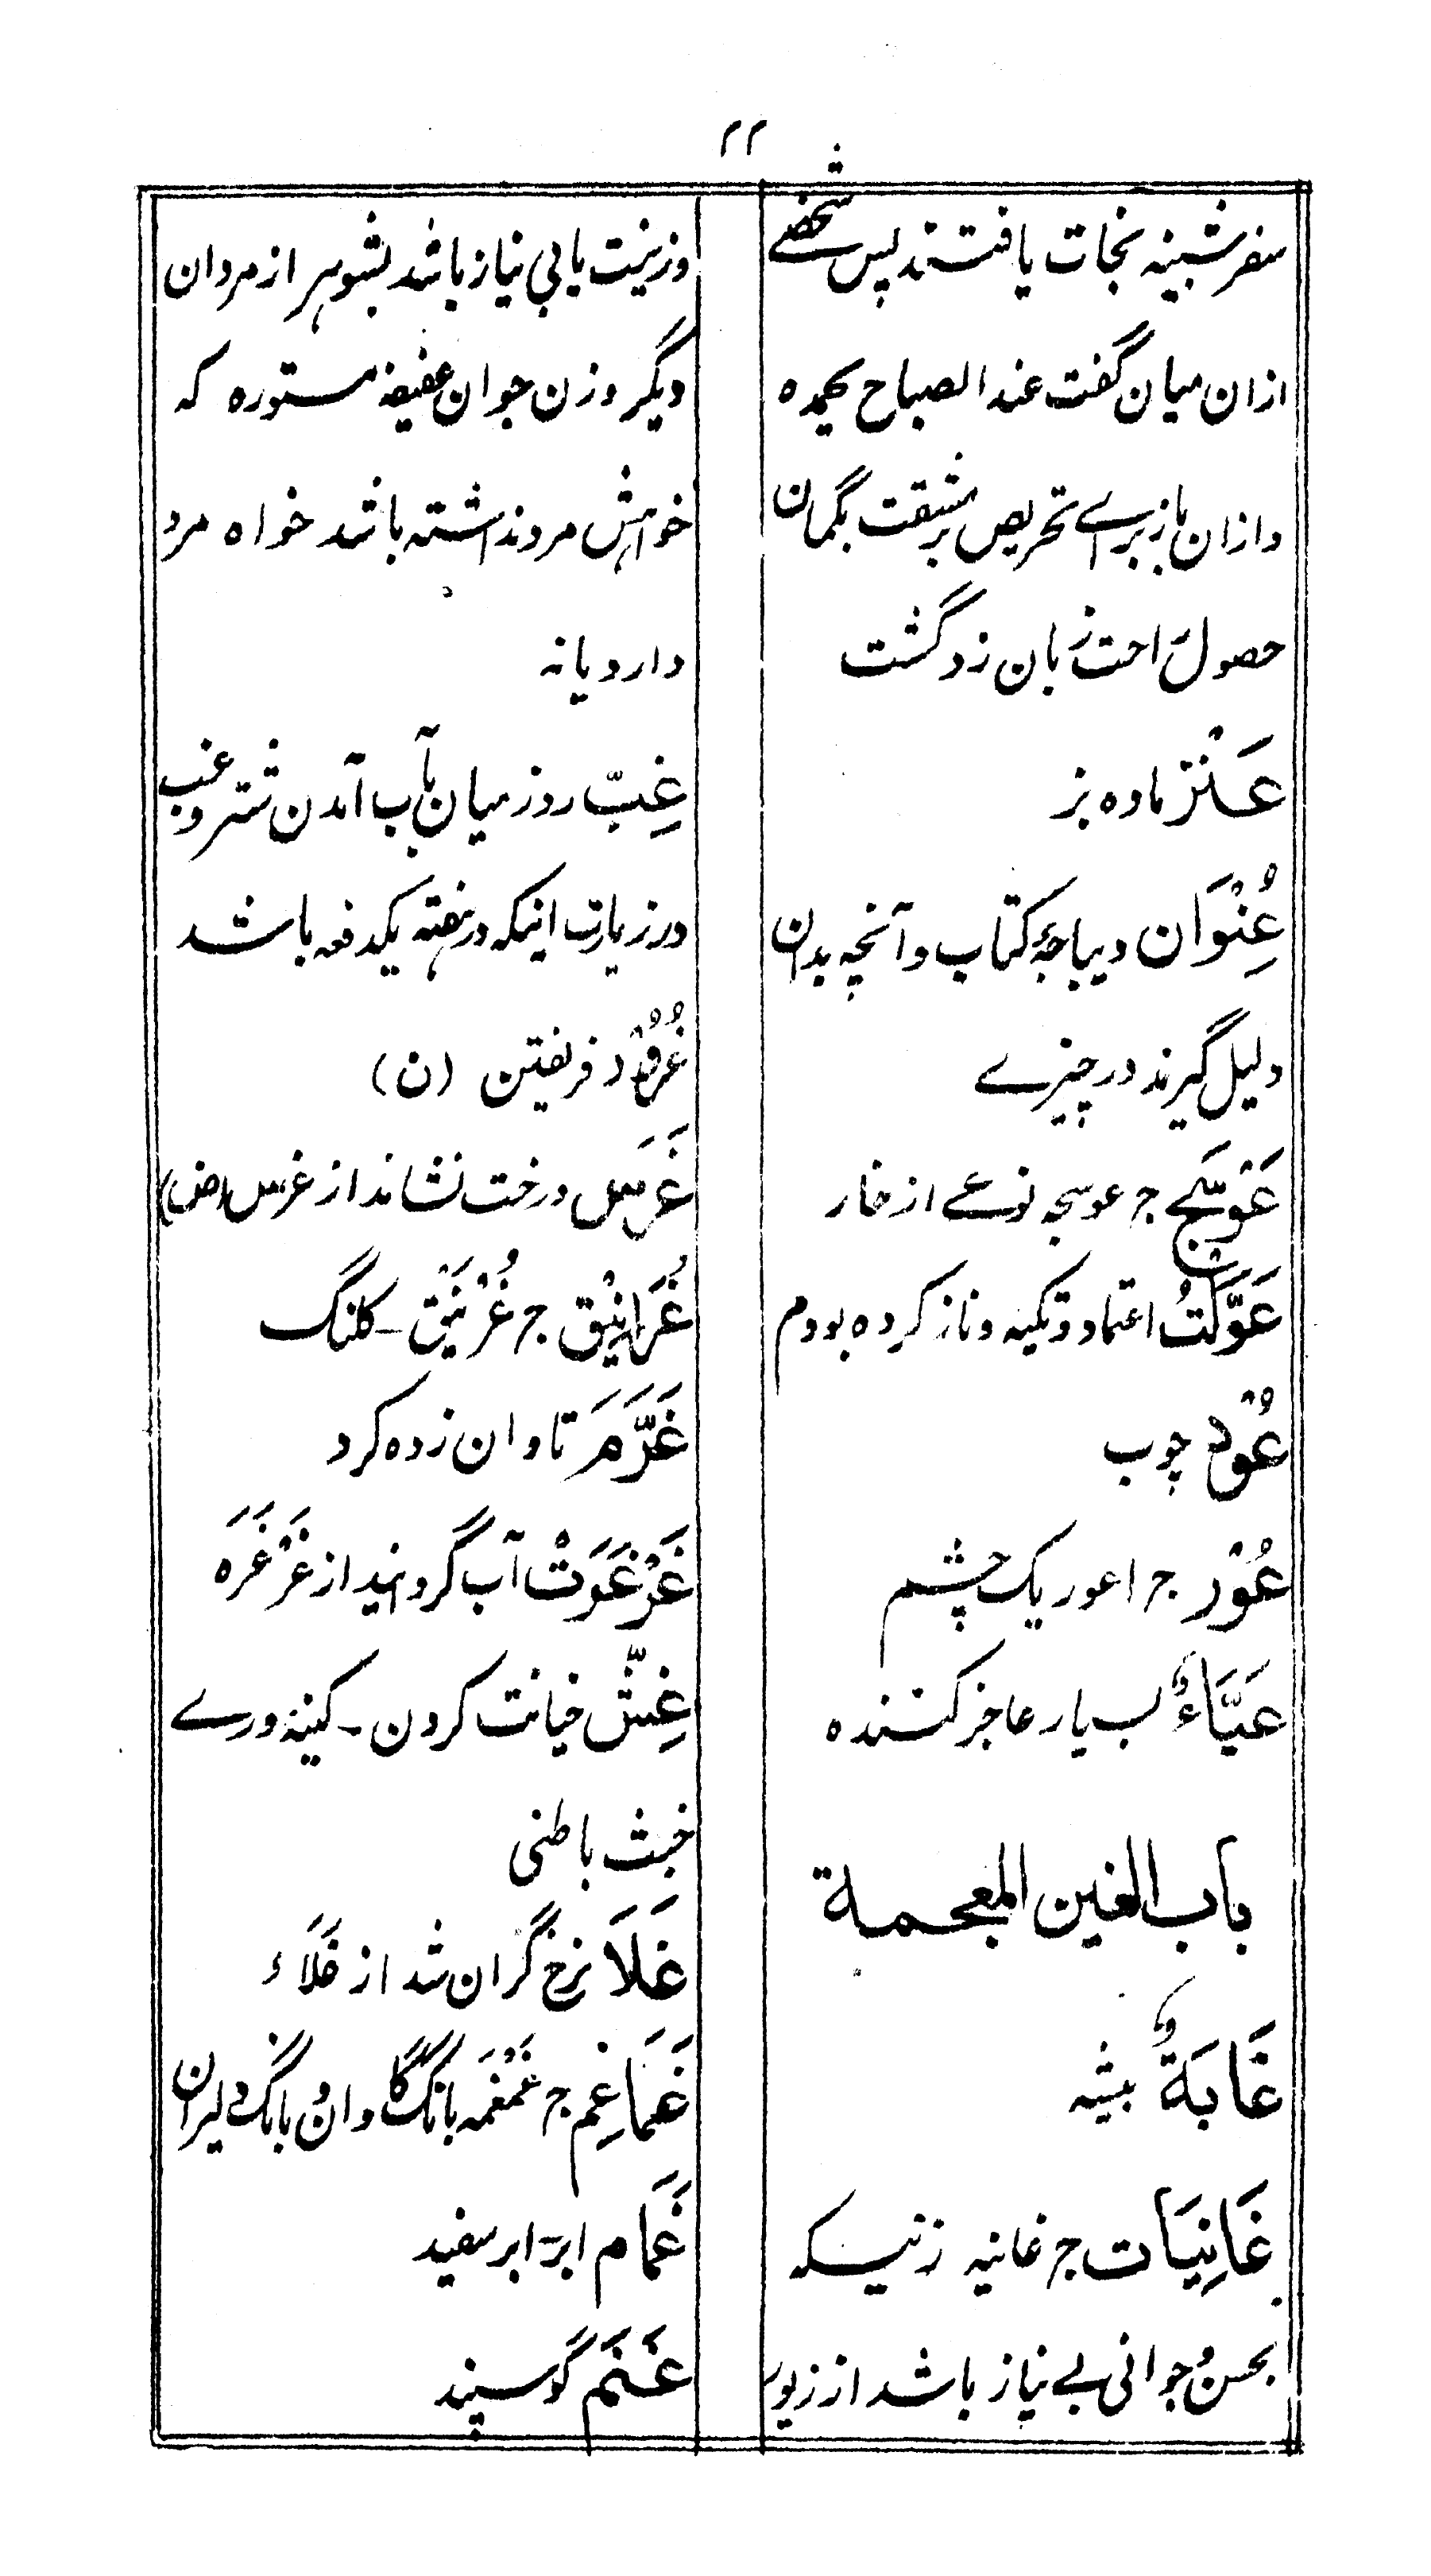 ۲۲
سفر شبینه نجات یافتند پس شخصے
ازان میان گفت عند الصباح یحمده
وازان باز برای تحریص بر مشقت بگمان
حصول راحت زبان زد گشت
عَنْز ماده بز
عُِنْوَان دیباجۂ کتاب و آنچه بدان
دلیل گیرند در چیزے
عَوْسَج جـ عوسجه نوعے از خار
عَوَّلَتُ اعتماد و تکیه و ناز کرده بودم
عُوْد چوب
عُوْر جـ اعور یک چشم
عَیَّاءٌ بسیار عاجز کننده
باب الغین المعجمة
غَابَةٌ بیشه
غَانِیَات جـ غانیه زنیکه
بحسن و جوانی بے نیاز باشد از زیور
و زینت یا بی نیاز باشد بشوهر از مردان
دیگر و زن جوان عفیفه مستوره که
خواهش مرد نداشته باشد خواه مرد
دارد یا نه
غِبّ روز میان بآب آمدن شتر و غب
در زیارت اینکه در هفته یکدفعه باشد
غُرُوْر فریفتن (ن)
غَرَسَ درخت نشاند از غرس (ض)
غُرَانِیْق جـ غُرْنَیْق - کلنگ
غَرَّمَ تاوان زده کرد
غَرْغَرَتْ آب گردانید از غَرْغَرَه
غِشّ خیانت کردن - کینه ورے
خبث باطنی
غَلَا نرخ گران شد از غَلَاء
غَمَاغِم جـ غَمْغَمَه بانگ گاوان و بانگ دلیران
غَمَام ابر - ابر سفید
غَنَم گوسپند